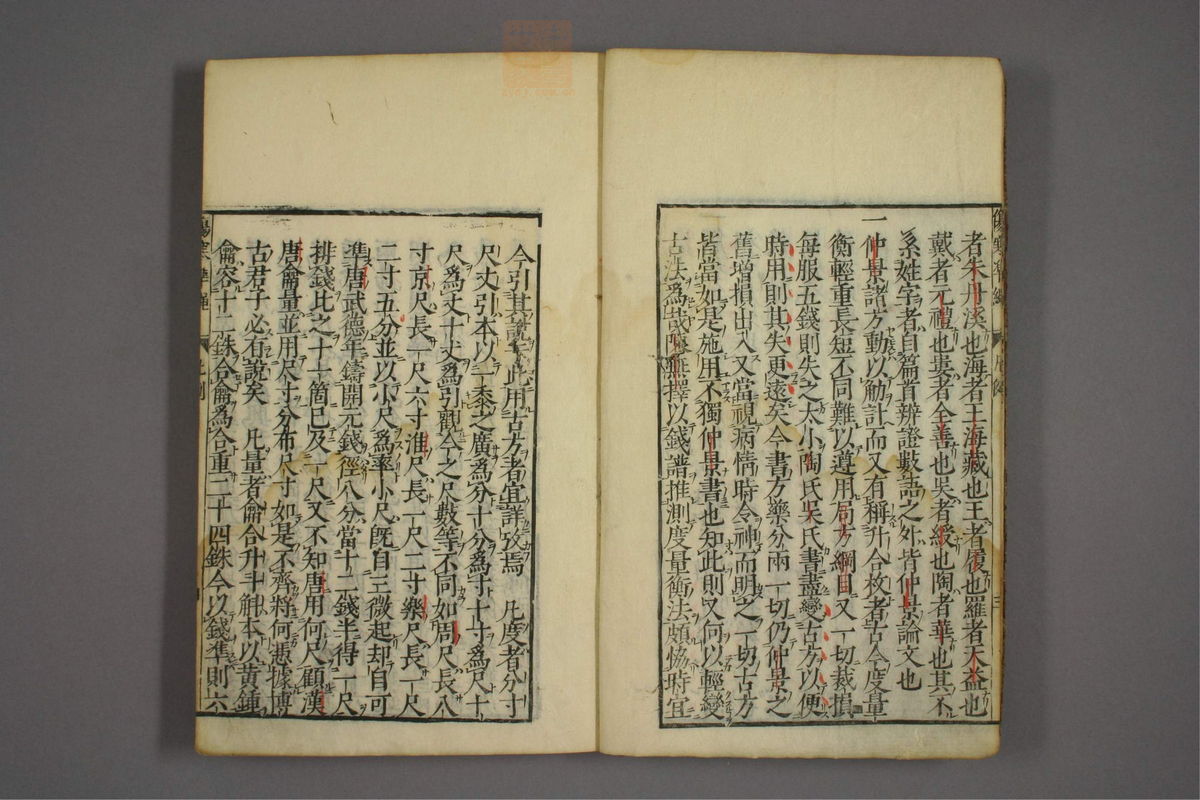 者朱丹溪也海者王海藏也王者履也羅者天益也
戴者元禮也婁者全善也吳者綬也陶者華也其不
系姓字者自篇首辨證數語之外皆仲景論文也
一仲景諸方動以觔計而又有稱升合枚者古今度量
衡輕重長短不同難以遵用局方綱目又一切裁損
每服五錢則失之太小陶氏吳氏書盡變古方以便
時用則其失更遠矣今書方藥分兩一切仍仲景之
舊增損出入又當視病情時令神而明之一切古方
皆當如是施用不獨仲景書也知此則又何以輕變
古法爲哉擇以錢譜推測度量衡法頗恊時宜
今引其說于此用古方者宜詳攷焉 凡度者分寸
尺丈引本以一黍之廣爲分十分爲寸十寸爲尺十
尺爲丈十丈爲引觀今之尺數等不同如周尺長八
寸京尺長一尺六寸淮尺長一尺二寸樂尺長一尺
二寸五分並以小尺爲率小尺旣自三微起却自可
準唐武德年鑄開元錢徑八分當十二錢半得一尺
排錢比之十十箇已及一尺又不知唐用何尺顧漢
唐龠量並用尺寸分布尺寸如是不齊將何憑據博
古君子必有說矣 凡量者龠合升斗斛本以黃鍾
龠容十二銖合龠爲合重二十四銖今以錢準則六
傷寒準繩
凡例
三
傷寒準繩
凡例